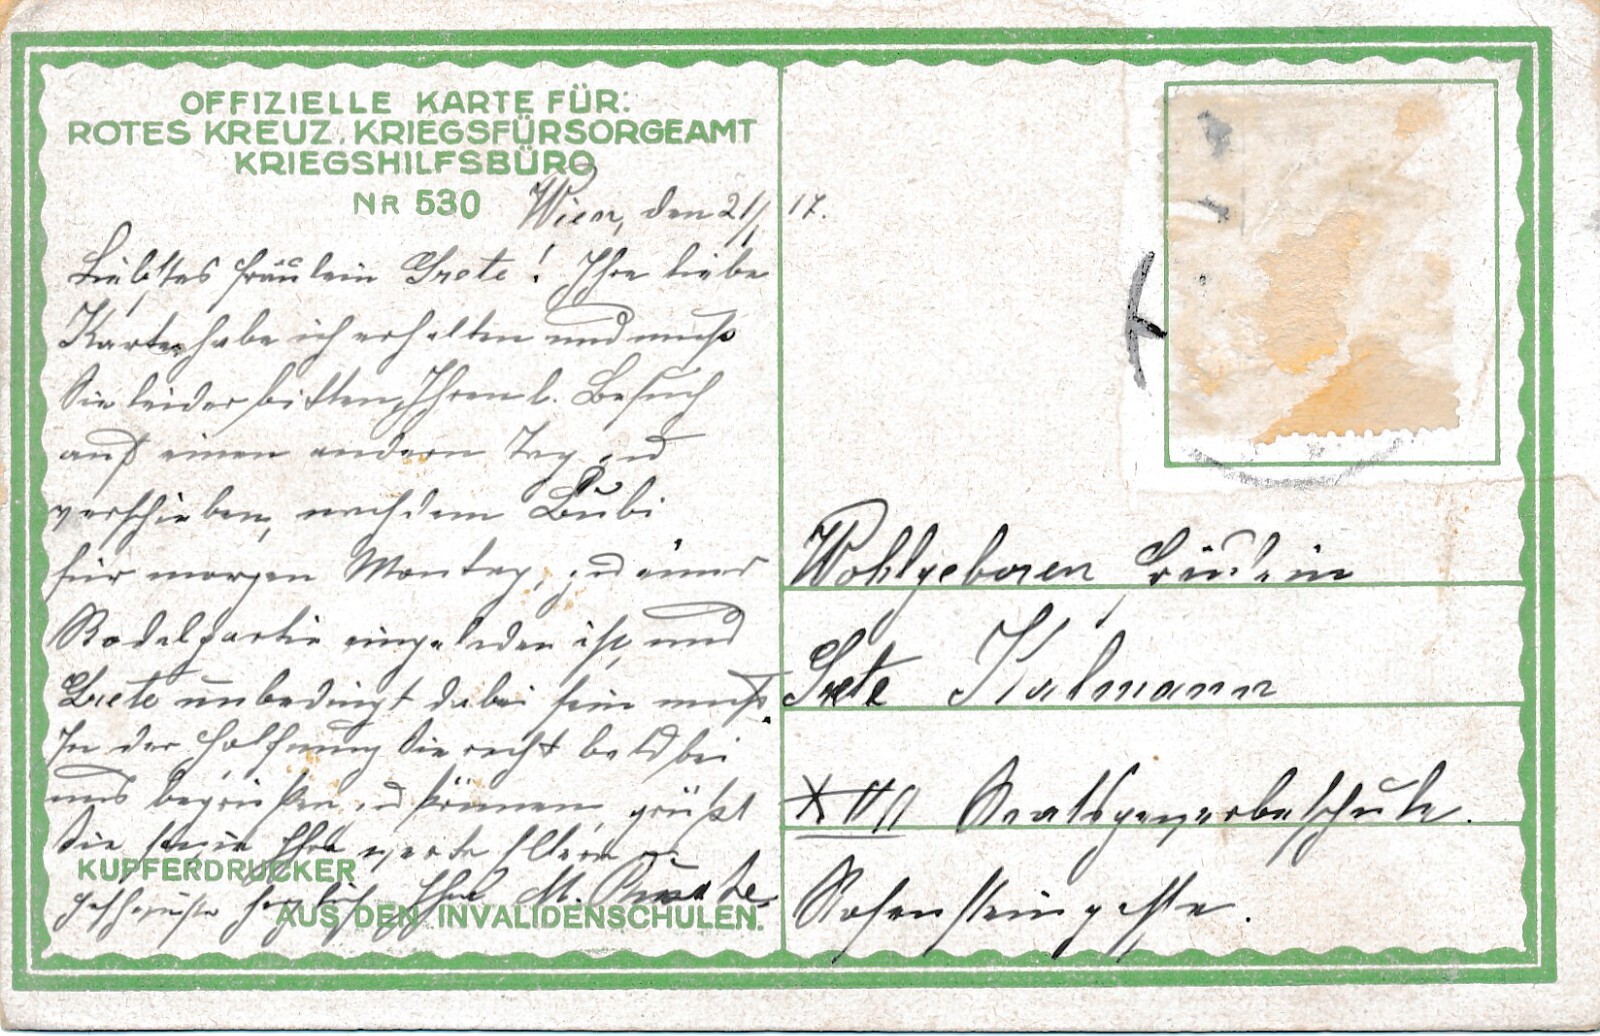 OFFIZIELLE KARTE FÜR:
ROTES KREUZ, KRIEGSFÜRSORGEAMT
KRIEGSHILFSBÜRO
NR 530
Wien, den 21/I 17.
Liebstes Fräulein Grete! Ihre liebe
Karte habe ich erhalten und muss
Sie leider bitten, Ihren l. Besuch
auf einen andern Tag zu
verschieben, nachdem Bubi
für morgen Montag, zu einer
Rodelpartie eingeladen ist, und
Grete unbedingt dabei sein muß.
In der Hoffnung Sie recht bald bei
uns begrüßen zu können, grüßt
Sie sowie Ihre werte Eltern u.
Geschwister herzlich Ihre M.
KUPFERDRUCKER
AUS DEN INVALIDENSCHULEN.
Wohlgeboren Fräulein
Grete Kalmann
XVII Staatsgewerbeschule.
Rosensteingasse.